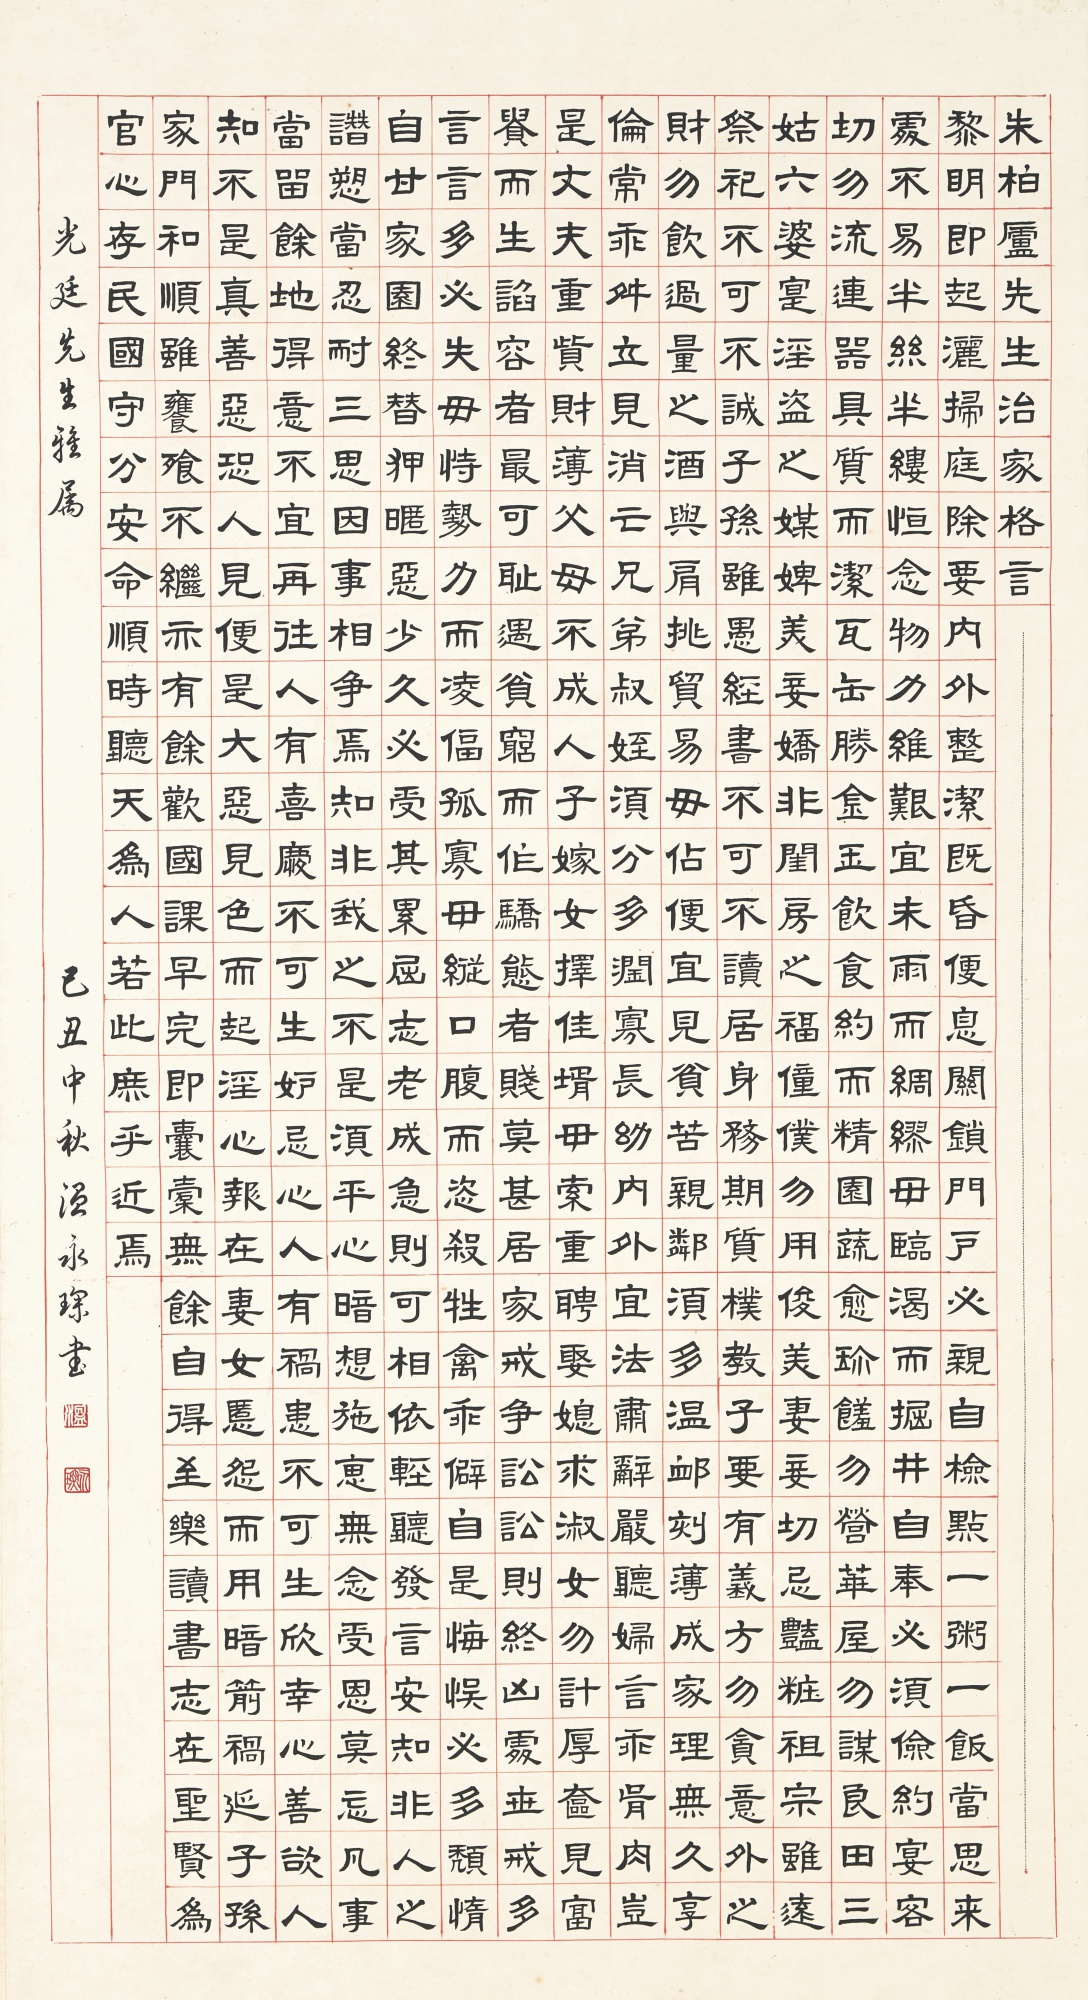 朱柏廬先生治家格言
黎明即起灑掃庭除要內外整潔既昏便息關鎖門戶必親自檢點一粥一飯當思来
處不易半絲半縷恒念物力維艱宜未雨而綢繆毋臨渴而掘井自奉必須儉約宴客
切勿流連器具質而潔瓦缶勝金玉飲食約而精園蔬愈珍饈勿營華屋勿謀良田三
姑六婆寔淫盜之媒婢美妾嬌非閨房之福僮僕勿用俊美妻妾切忌豔粧祖宗雖遠
祭祀不可不誠子孫雖愚經書不可不讀居身務期質樸教子要有義方勿貪意外之
財勿飲過量之酒與肩挑貿易毋佔便宜見貧苦親鄰須多温卹刻薄成家理無久享
倫常乖舛立見消亡兄弟叔姪須分多潤寡長幼內外宜法肅辭嚴聽婦言乖骨肉豈
是丈夫重貲財薄父母不成人子嫁女擇佳壻毋索重聘娶媳求淑女勿計厚奩見富
貴而生諂容者最可耻遇貧窮而作驕態者賤莫甚居家戒争訟訟則終凶處世戒多
言言多必失毋恃勢力而凌偪孤寡毋縦口腹而恣殺牲禽乖僻自是悔悮必多頹惰
自甘家園終替狎暱惡少久必受其累屈志老成急則可相依輕聽發言安知非人之
譖愬當忍耐三思因事相争焉知非我之不是須平心暗想施恵無念受恩莫忘凡事
當留餘地得意不宜再往人有喜慶不可生妒忌心人有禍患不可生欣幸心善欲人
知不是真善惡恐人見便是大惡見色而起淫心報在妻女慝怨而用暗箭禍延子孫
家門和順雖饔飧不繼亦有餘歡國課早完即囊橐無餘自得至樂讀書志在聖賢為
官心存民國守分安命順時聽天為人若此庶乎近焉
光廷先生雅属
己丑中秋温永琛书